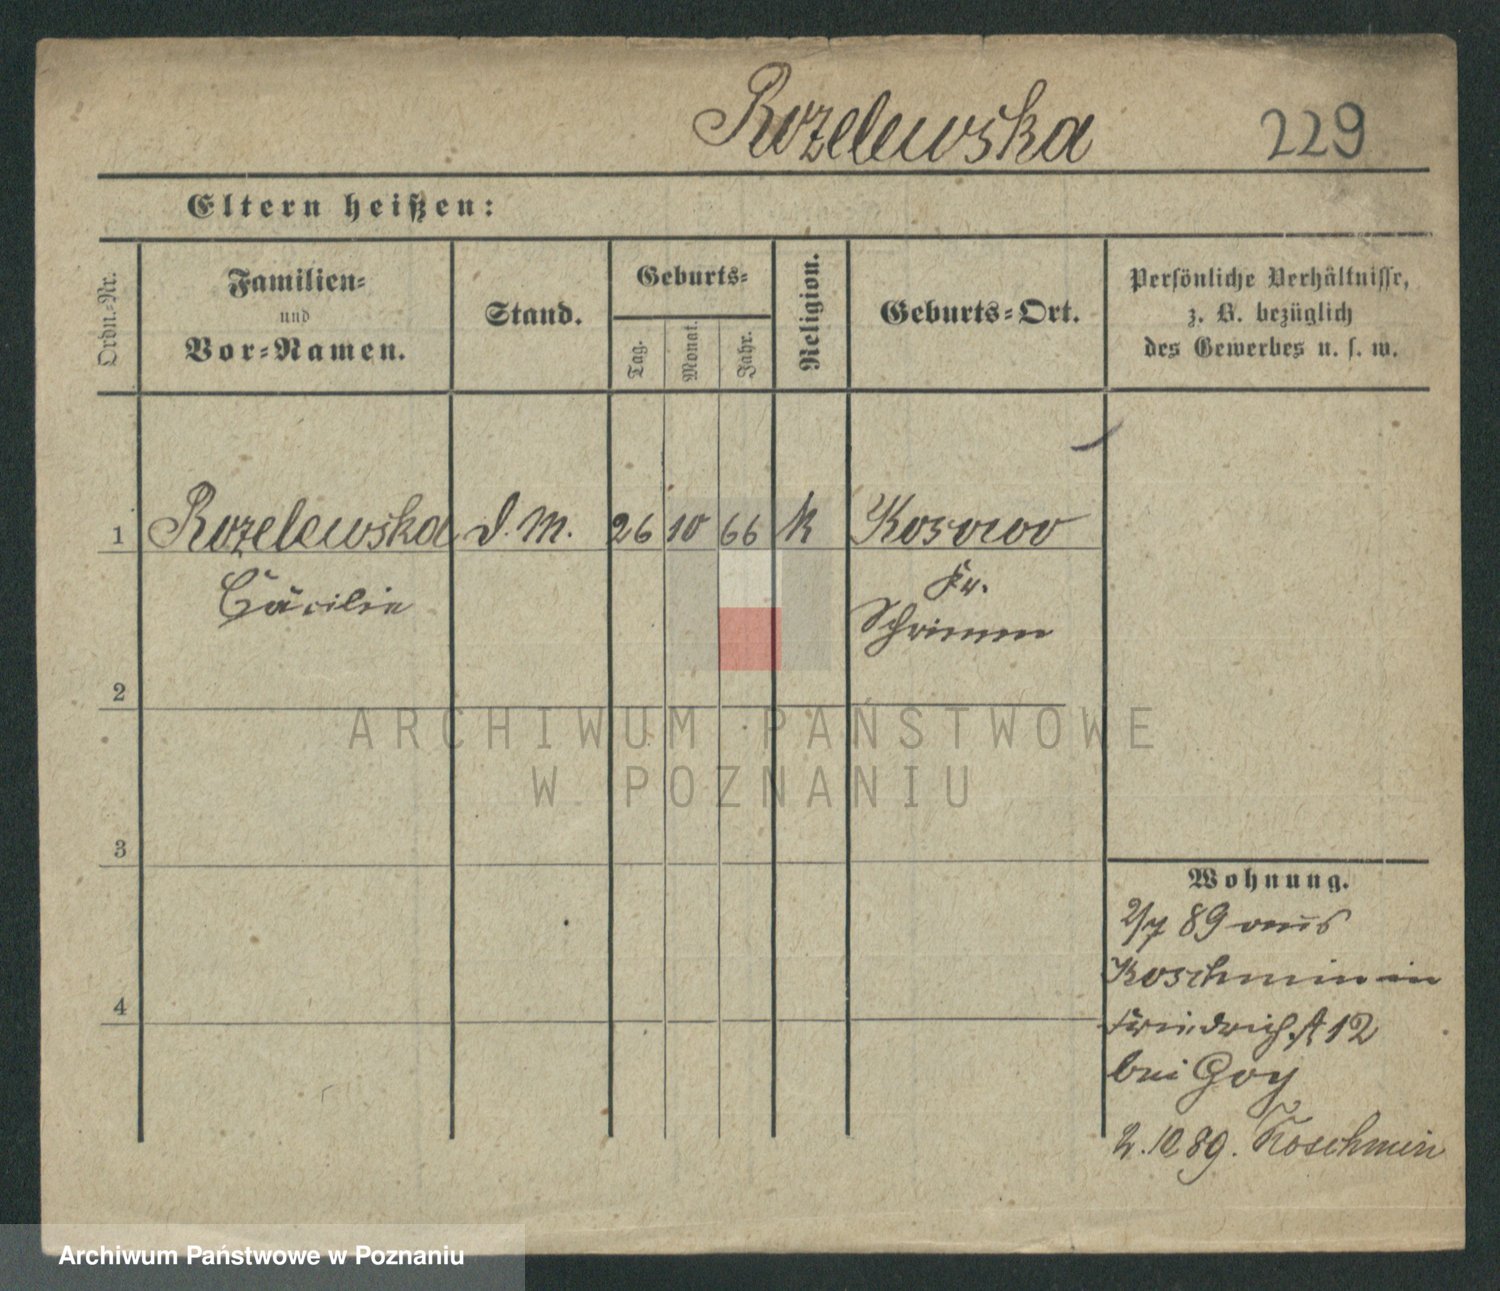 Rozelewska 229
Eltern heißen:
Ordn.-Nr.
Familien-
und
Vor-Namen.
Stand.
Geburts-
Tag.
Monat.
Jahr.
Religion.
Geburts-Ort.
Persönliche Verhältnisse,
z. B. bezüglich
des Gewerbes u. s. w.
1 Rozelewska d. M. 26 10 66 k
Cäcilie
Kr.
Schrimm
2
3
4
Wohnung.
2/7 89 aus
Koschmin in
Friedrich.st 12
bei Goy
2.10 89. Koschmin
ARCHIWUM PAŃSTWOWE
W POZNANIU
Archiwum Państwowe w Poznaniu